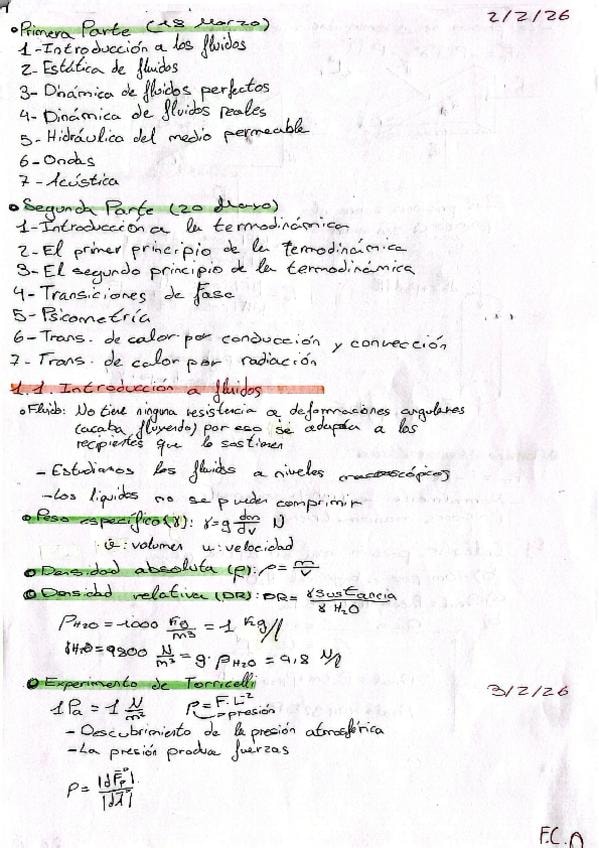 2/2/26
• Primera Parte (18 Marzo)
1-Introducción a los fluidos
2- Estática de fluidos
3- Dinámica de fluidos perfectos
4- Dinámica de fluidos reales
5- Hidráulica del medio permeable
6- Ondas
7- Acústica
• Segunda Parte (20 Mayo)
1-Introducción a la termodinámica
2-El primer principio de la Termodinámica
3-El segundo principio de la termodinámica
4-Transiciones de Fase
5-Psicometría
6-Trans. de calor por conducción y convección
7-Trans. de calor por radiación
1.1. Introducción a fluidos
• Fluido: No tiene ninguna resistencia a deformaciones angulares
(acaba fluyendo) por eso se adapta a los
recipientes que lo sostienen
- Estudiamos los fluidos a niveles macroscópicos
-Los líquidos no se pueden comprimir
• Peso específico (γ): γ=g dm/dv N
v: volumen u: velocidad
• Densidad absoluta (ρ): ρ = m/v
• Densidad relativa (DR): DR= γ sustancia/γ H₂O
ρH₂O = 1000 Kg/m³ = 1 Kg/l
γH₂O = 9800 N/m³ = g · ρH₂O = 9,8 N/l
• Experimento de Torricelli
3/2/26
1 Pa = 1 N/m² P = F·L⁻²
→presión
- Descubrimiento de la presión atmosférica
-La presión produce fuerzas
P = |dF⃗p|/|dA⃗|
F.C.